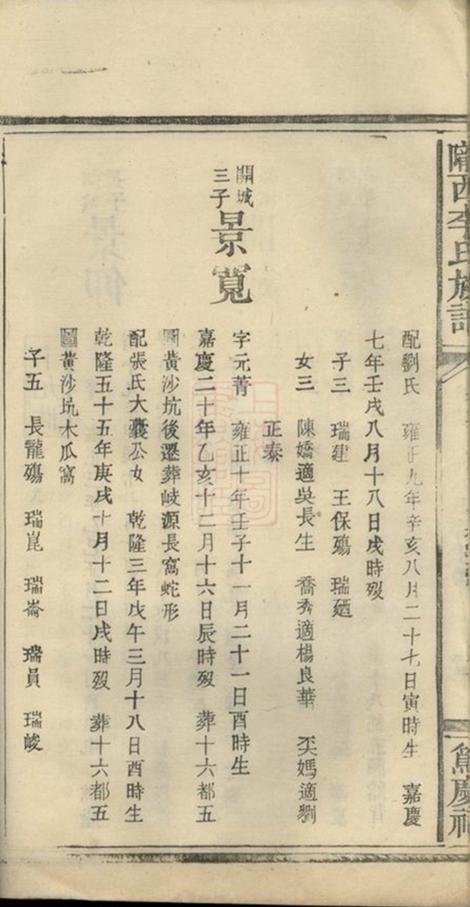 隴西李氏族譜
篤慶祠
配劉氏 雍正九年辛亥八月二十七日寅時生 嘉慶
七年壬戌八月十八日戌時歿
子三 瑞建 王保殤 瑞廼
女三 陳嬌適吳長生 喬秀適楊良華 関媽適劉
正泰
開城
三子
景寬
字元菁 雍正十年壬子十一月二十一日酉時生
嘉慶二十年乙亥十二月十六日辰時歿 葬十六都五
圖黃沙坑後遷葬岐源長窩蛇形
配張氏大㐮公女 乾隆三年戊午三月十八日酉時生
乾隆五十五年庚戌十月十二日戌時歿 葬十六都五
圖黃沙坑木瓜窩
子五 長龍殤 瑞崑 瑞崙 瑞員 瑞峻